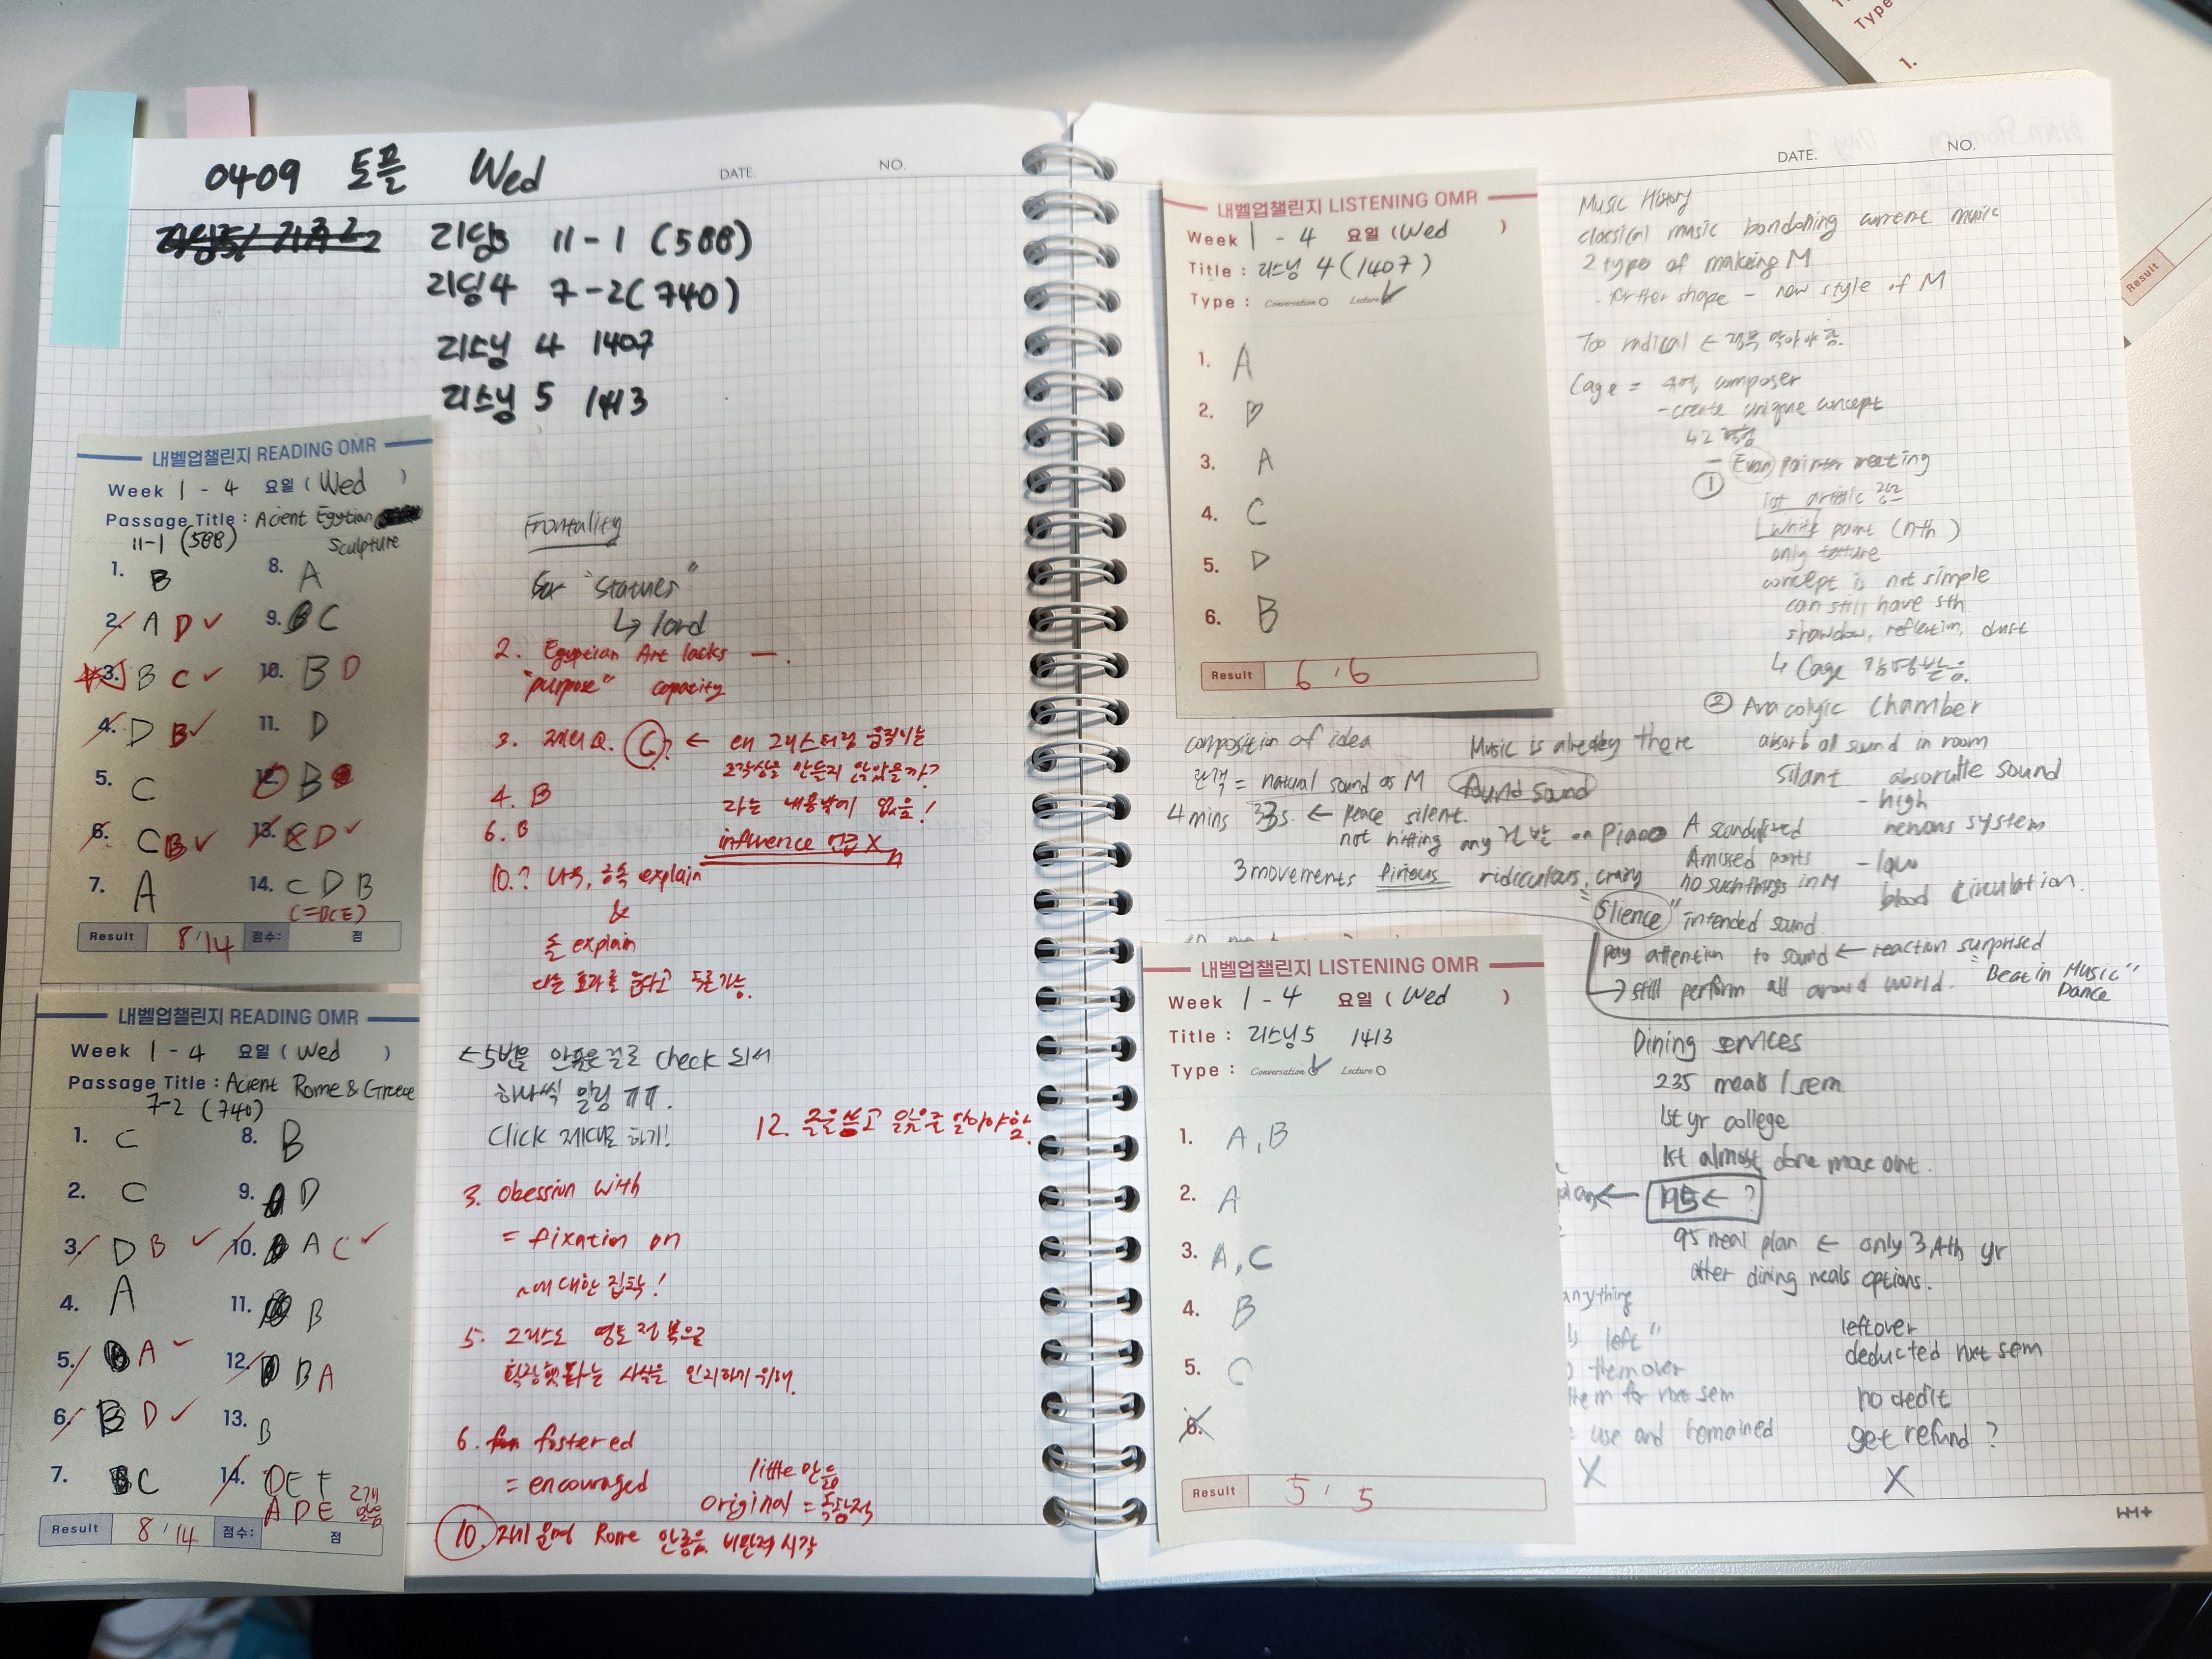 0409 토플 Wed
DATE.
NO.
리딩3 11-1 (588)
리딩4 7-2 (740)
리스닝 4 1407
리스닝 5 1413
내벨업챌린지 READING OMR
Week 1 - 4 요일 ( Wed )
Passage Title : Acient Egytian
11-1 (588) Sculpture
1. B
2. A D
3. B C
4. D B
5. C
6. C B
7. A
8. A
9. C
10. B D
11. D
12. B
13. D
14. C D B
Result 8/14 점수: 점
Frontality
for "Statues"
↳ lord
2. Egyptian Art lacks —.
"purpose" capacity
3. 제외Q. C? ← 왜 그리스처럼 움직이는
조각상을 만들지 않았을까?
라는 내용밖에 없음!
influence 언급 X
4. B
6. B
10.? 나무, 금속 explain
&
돌 explain
내벨업챌린지 READING OMR
Week 1 - 4 요일 ( Wed )
Passage Title : Acient Rome & Greece
7-2 (740)
1. C
2. C
3. D B
4. A
5. A
6. B D
7. C
8. B
9. D
10. A C
11. B
12. B A
13. B
14. D E F
A D E 2개 맞음
Result 8/14 점수: 점
←5번을 안푼은걸로 check 되서
하나씩 밀림 ㅠㅠ.
Click 제대로 하기!
12. 글을 쓰고 읽을줄 알아야함.
3. obession with
= fixation on
~에 대한 집착!
5. 그리스도 영토 정복으로
확장했다는 사실을 인지하기 위해.
6. fostered
= encouraged
little 만음
original = 독창적
10. Rome 안좋음. 비판적 시각
DATE.
NO.
내벨업챌린지 LISTENING OMR
Week 1 - 4 요일 ( Wed )
Title : 리스닝 4 (1407)
Type : Conversation Lecture
1. A
2. D
3. A
4. C
5. D
6. B
Result 6/6
Music History
classical music bondoning current music
2 types of making M
- further shape - new style of M
Too radical ←
Cage = composer
- create unique concept
- Evan painter meeting
①
1st artistic
white paint (nth)
only texture
concept is not simple
can still have sth
showdow, reflection, dust
↳ Cage 감명받음.
② Anacolyic Chamber
absorb all sound in room
Silant
absorutte sound
- high
nervous system
- low
blood circulation.
composition of idea
Music is alredey there
관객 = natural sound as M
found sound
4 mins 33s. ← peace silent.
not hitting any 건반 on piano
3 movements firious ridiculous, crazy
A scandalized
Amused parts
no such things in M
"Slience" intended sound
pay attention to sound ← reaction surprised
→ still perform all around world.
"Beat in Music"
Dance
내벨업챌린지 LISTENING OMR
Week 1 - 4 요일 ( Wed )
Title : 리스닝 5 1413
Type : Conversation Lecture
1. A, B
2. A
3. A, C
4. B
5. C
6.
Result 5/5
Dining services
235 meals / sem
1st yr college
1st almost done move out.
← 95 ← ?
95 meal plan ← only 3,4th yr
other dining meals options.
anything
left"
them over
them for nxt sem
use and remained
X
leftover
deducted nxt sem
no credit
get refund?
X
Type
1.
Result